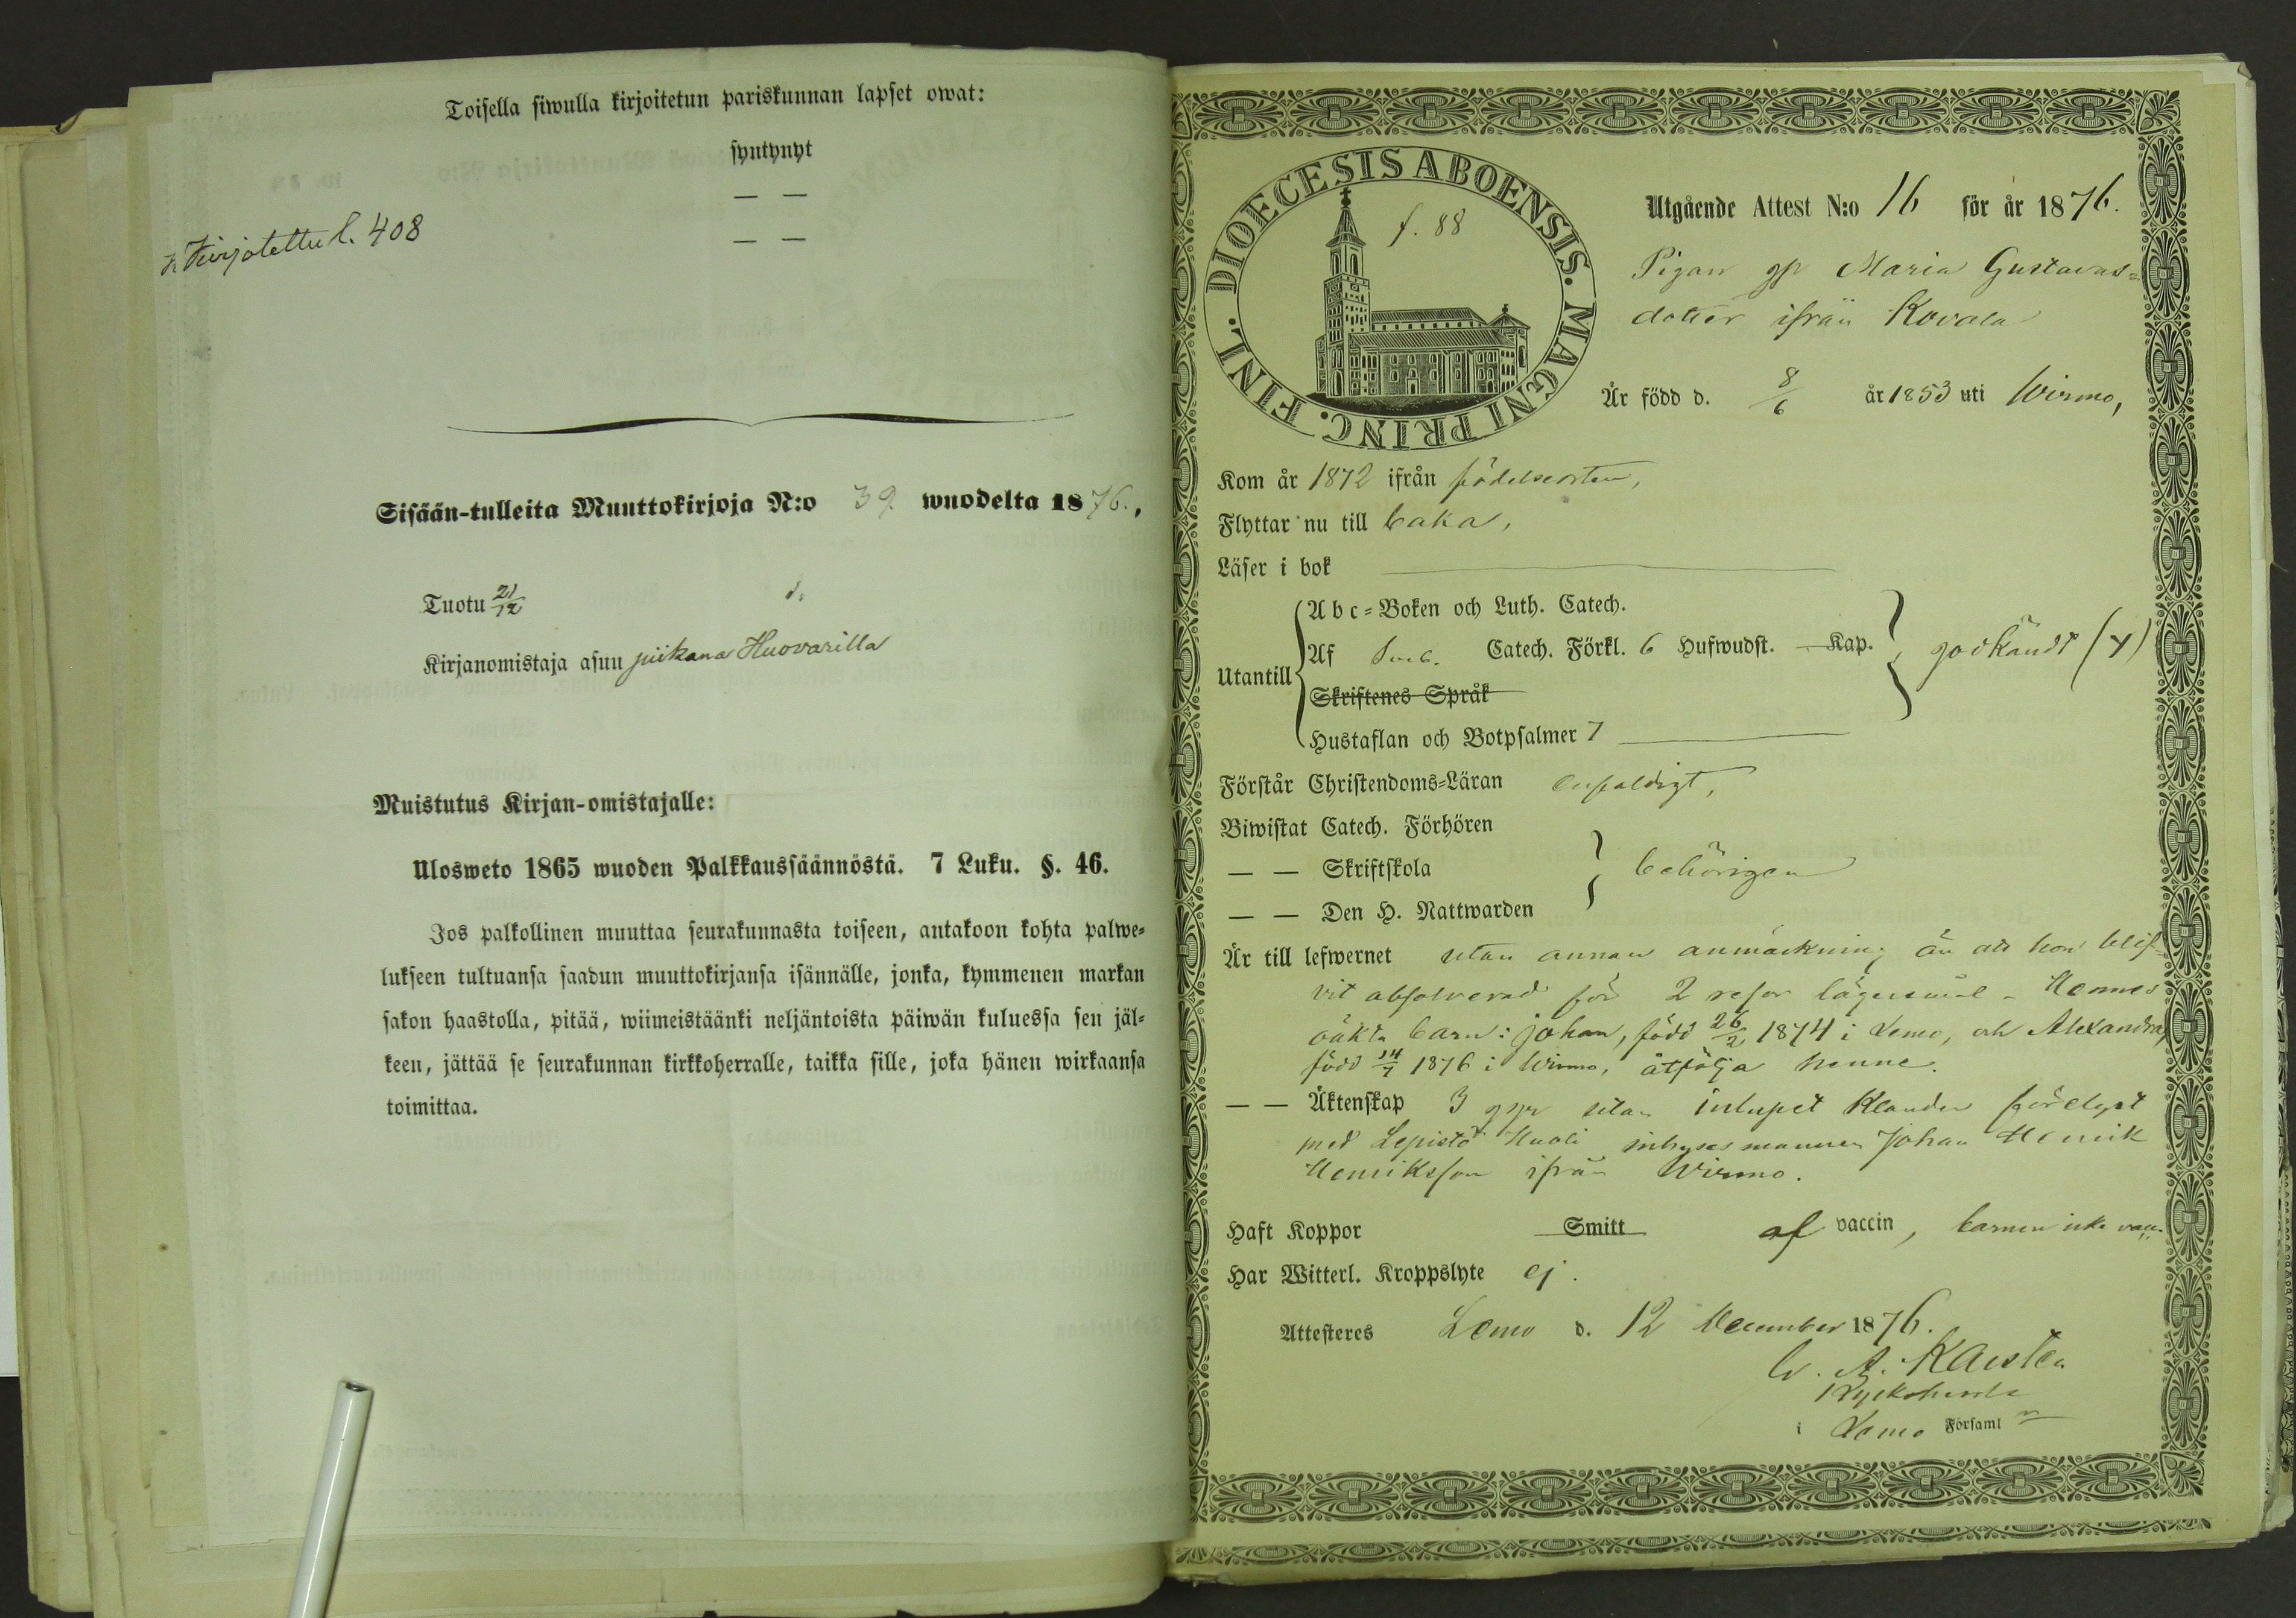 Toisella siwulla kirjoitetun pariskunnan lapset owat:
syntynyt
— —
— —
Kirjotettu l. 408
Sisään-tulleita Muuttokirjoja N:o 39. wuodelta 1876.
Tuotu 21/12
Kirjanomistaja asuu piikana Huovarilla
Muistutus Kirjan-omistajalle:
Ulosweto 1865 wuoden Palkkaussäännöstä. 7 Luku. §. 46.
Jos palkollinen muuttaa seurakunnasta toiseen, antakoon kohta palwe-
lukseen tultuansa saadun muuttokirjansa isännälle, jonka, kymmenen markan
sakon haastolla, pitää, wiimeistäänki neljäntoista päiwän kuluessa sen jäl-
keen, jättää se seurakunnan kirkkoherralle, taikka sille, joka hänen wirkaansa
toimittaa.
DIOECESIS ABOENSIS. MAGNI PRINC. FINL.
f. 88
Utgående Attest N:o 16 för år 1876.
Pigan Maria Gustavas-
dotter ifrån Kovala
Är född d. 8/6 år 1853 uti Wirmo,
Kom år 1872 ifrån födelseorten,
Flyttar nu till
Läser i bok
Utantill
Abc-Boken och Luth. Catech.
Af Catech. Förkl. 6 Hufwudst. Kap.
godkändt
Skriftenes Språk
Hustaflan och Botpsalmer 7
Förstår Christendoms-Läran enfaldigt,
Biwistat Catech. Förhören
— — Skriftskola
behörigen
— — Den H. Nattwarden
Är till lefwernet utan annan anmärkning än att hon blif-
vit absolverad för 2 resor lägersmål - Hennes
oäkta barn: Johan, född 26/2 1874 i Lemo, och Alexandra,
född 14/7 1876 i Wirmo, åtfölja henne.
— — Äktenskap 3 ggr utan inlupet klander förelyst
med Lepistö inhysesmannen Johan Henrik
Henriksson ifrån Wirmo.
Haft Koppor Smitt af vaccin, barnen icke vacc.
Har Witterl. Kroppslyte ej.
Attesteres Lemo d. 12 December 1876.
Karsten
Kyrkoherde
i Lemo Församl